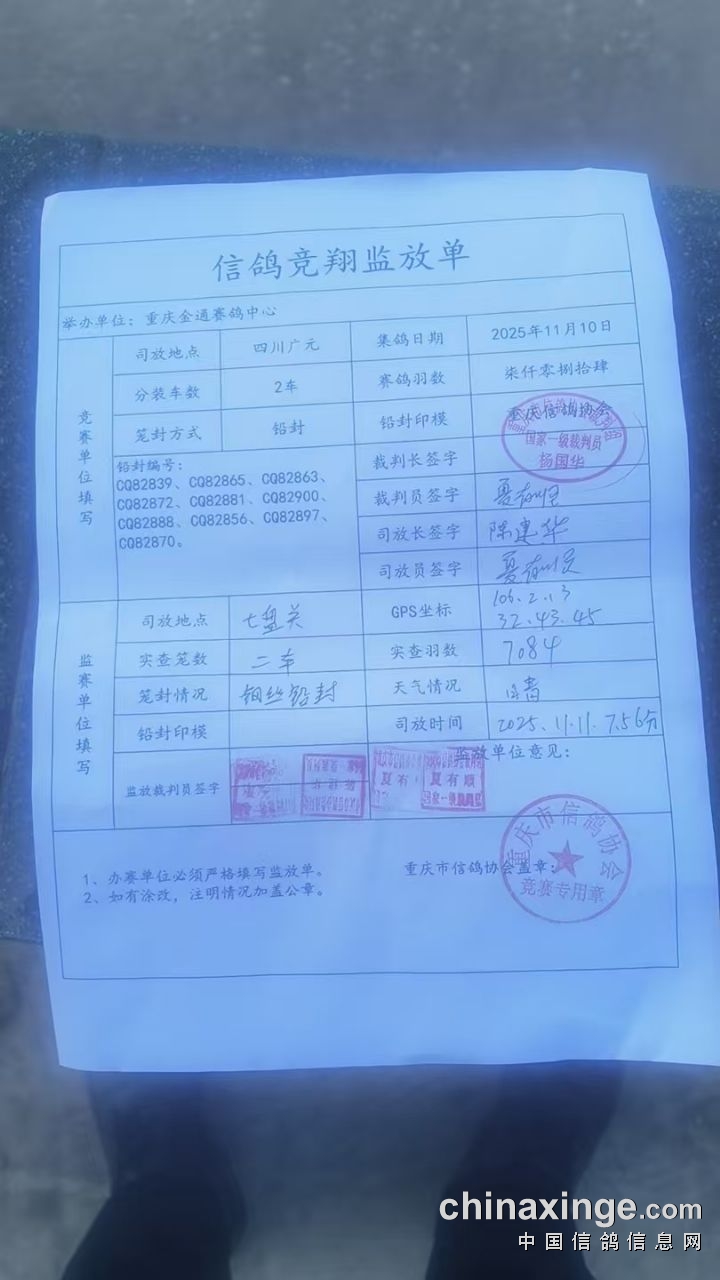 信鸽竞翔监放单
举办单位：重庆金通赛鸽中心
竞赛单位填写
司放地点 四川广元 集鸽日期 2025年11月10日
分装车数 2车 赛鸽羽数 柒仟零捌拾肆
笼封方式 铅封 铅封印模 重庆信鸽协会
国家一级裁判员
杨国华
铅封编号：
CQ82839、CQ82865、CQ82863、
CQ82872、CQ82881、CQ82900、
CQ82888、CQ82856、CQ82897、
CQ82870。
裁判长签字
裁判员签字
司放长签字 陈建华
司放员签字
监赛单位填写
司放地点 七盘关 GPS坐标 106.2.13
32.43.45
实查笼数 二车 实查羽数 7084
笼封情况 钢丝铅封 天气情况
铅封印模 司放时间 2025.11.11.7.56分
监放裁判员签字 监放单位意见：
夏有 夏有顺
1、办赛单位必须严格填写监放单。
2、如有涂改，注明情况加盖公章。
重庆市信鸽协会盖章：
重庆市信鸽协会
竞赛专用章
chinaxinge.com
中国信鸽信息网